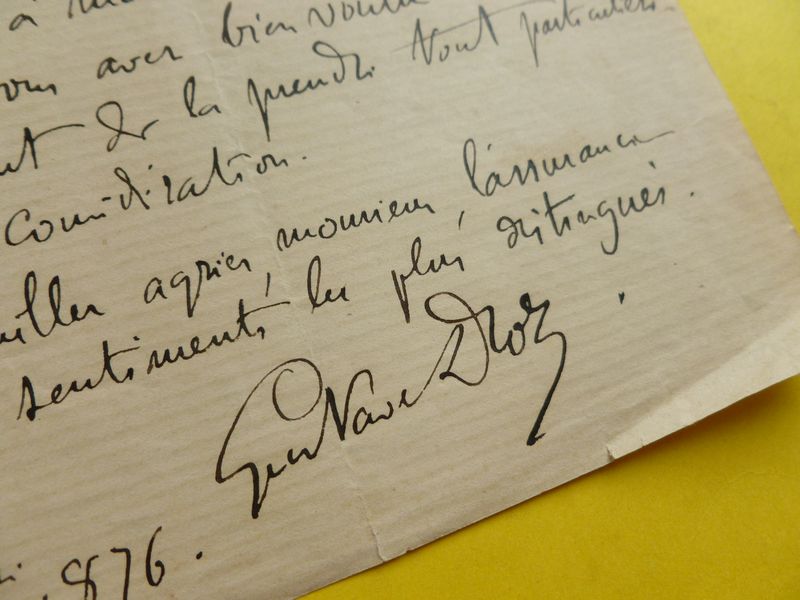 à
vous avez bien voulu
de la prendre tout particulière.
considération.
agréer, monsieur, l'assurance
sentiments les plus distingués.
Gustave Droz
1876.